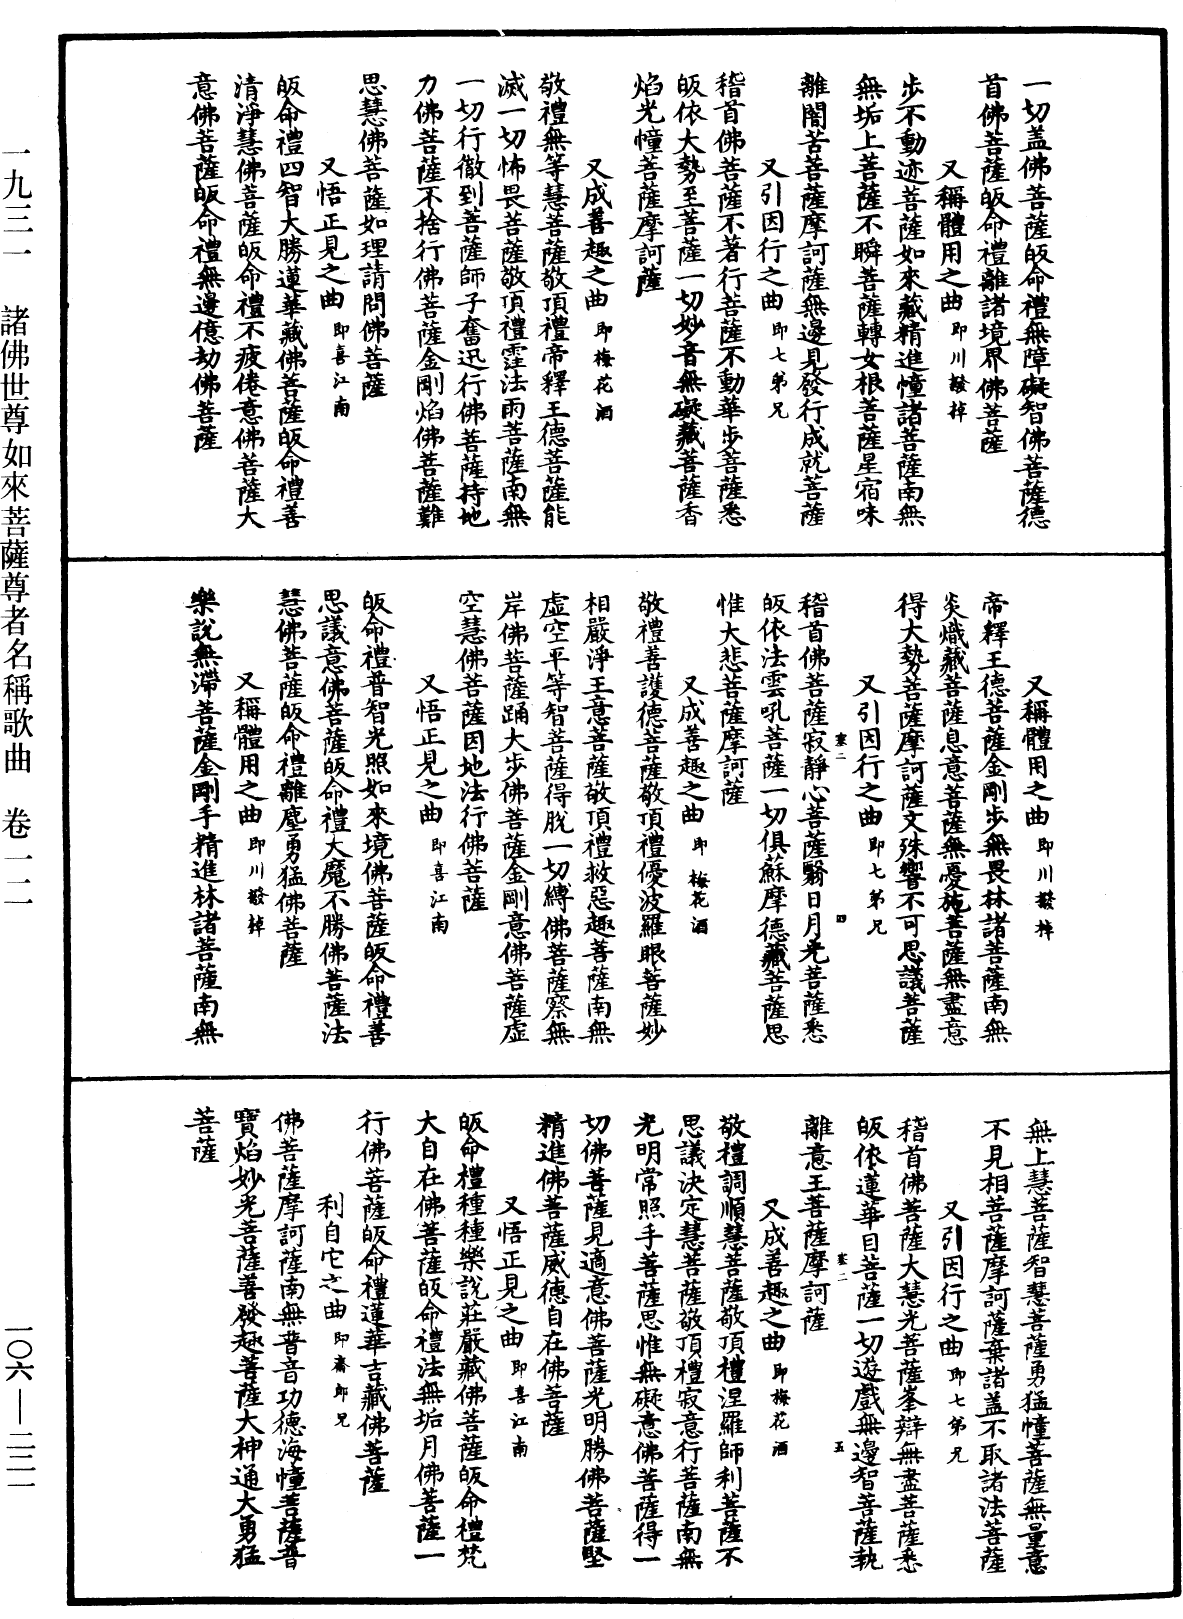 一切盖佛菩薩皈命禮無障礙智佛菩薩德
首佛菩薩皈命禮離諸境界佛菩薩
又稱體用之曲即川撥棹
步不動迹菩薩如來藏精進幢諸菩薩南無
無垢上菩薩不瞬菩薩轉女根菩薩星宿味
離闇苦菩薩摩訶薩無邊見發行成就菩薩
又引因行之曲即七弟兄
稽首佛菩薩不著行菩薩不動華步菩薩悉
皈依大勢至菩薩一切妙音無礙藏菩薩香
焰光幢菩薩摩訶薩
又成善趣之曲即梅花酒
敬禮無等慧菩薩敬頂禮帝釋王德菩薩能
滅一切怖畏菩薩敬頂禮霔法雨菩薩南無
一切行徹到菩薩師子奮迅行佛菩薩持地
力佛菩薩不捨行佛菩薩金剛焰佛菩薩難
思慧佛菩薩如理請問佛菩薩
又悟正見之曲即喜江南
皈命禮四智大勝蓮華藏佛菩薩皈命禮善
清淨慧佛菩薩皈命禮不疲倦意佛菩薩大
意佛菩薩皈命禮無邊億劫佛菩薩
又稱體用之曲即川撥棹
帝釋王德菩薩金剛步無畏林諸菩薩南無
炎熾藏菩薩息意菩薩無憂施菩薩無盡意
得大勢菩薩摩訶薩文殊響不可思議菩薩
又引因行之曲即七弟兄
稽首佛菩薩寂靜心菩薩翳日月光菩薩悉
皈依法雲吼菩薩一切俱蘇摩德藏菩薩思
惟大悲菩薩摩訶薩
又成善趣之曲即梅花酒
敬禮善護德菩薩敬頂禮優波羅眼菩薩妙
相嚴淨王意菩薩敬頂禮救惡趣菩薩南無
虛空平等智菩薩得脫一切縛佛菩薩察無
岸佛菩薩踊大步佛菩薩金剛意佛菩薩虛
空慧佛菩薩因地法行佛菩薩
又悟正見之曲即喜江南
皈命禮普智光照如來境佛菩薩皈命禮善
思議意佛菩薩皈命禮大魔不勝佛菩薩法
慧佛菩薩皈命禮離塵勇猛佛菩薩
又稱體用之曲即川撥棹
樂說無滯菩薩金剛手精進林諸菩薩南無
無上慧菩薩智慧菩薩勇猛幢菩薩無量意
不見相菩薩摩訶薩棄諸盖不取諸法菩薩
又引因行之曲即七弟兄
稽首佛菩薩大慧光菩薩峯辯無盡菩薩悉
皈依蓮華目菩薩一切遊戲無邊智菩薩執
離意王菩薩摩訶薩
又成善趣之曲即梅花酒
敬禮調順慧菩薩敬頂禮涅羅師利菩薩不
思議決定慧菩薩敬頂禮寂意行菩薩南無
光明常照手菩薩思惟無礙意佛菩薩得一
切佛菩薩見適意佛菩薩光明勝佛菩薩堅
精進佛菩薩威德自在佛菩薩
又悟正見之曲即喜江南
皈命禮種種樂說莊嚴藏佛菩薩皈命禮梵
大自在佛菩薩皈命禮法無垢月佛菩薩一
行佛菩薩皈命禮蓮華吉藏佛菩薩
利自它之曲即齋郎兒
佛菩薩摩訶薩南無普音功德海幢菩薩普
寶焰妙光菩薩善發趣菩薩大神通大勇猛
菩薩
一九三一 諸佛世尊如來菩薩尊者名稱歌曲 卷一二
一〇六—二三一